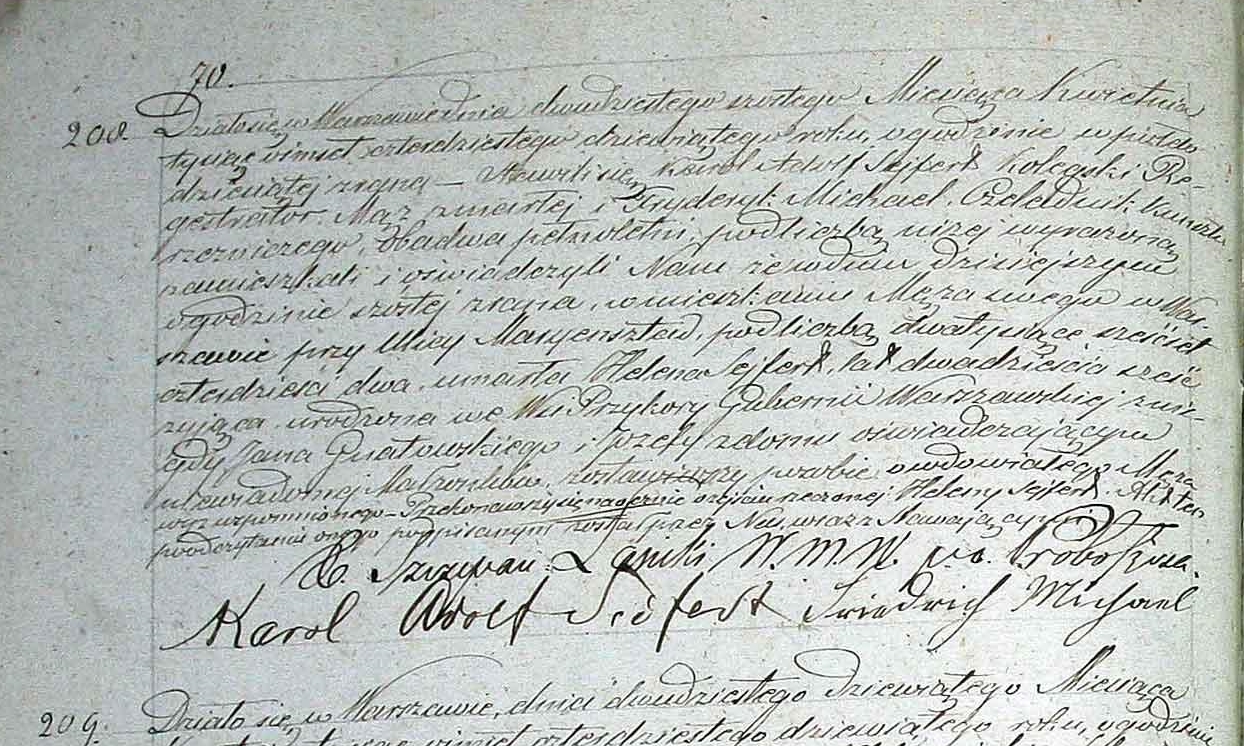 70.
208. Działo się w Warszawie dnia dwudziestego szostego Miesiąca Kwietnia
tysiąc ośmset czterdziestego dziewiątego roku, o godzinie w puł do
dziesiątej zrana — Stawili się, Karol Adolf Sejfert Kolegski Re-
gestrator Mąż zmarłej i Fryderyk Michael Czeladnik Kunsztu
rzezniczego, Obadwa pełnoletni, pod liczbą niżej wyrażoną
zamieszkali i oświadczyli Nam że w dniu Dzisiejszym
o godzinie szóstej zrana, w mieszkaniu Męża swego w War-
szawie przy Ulicy Maryensztad, pod liczbą dwatysiące sześćset
czterdzieści dwa, umarła Helena Sejfert, lat dwadzieścia sześć
żyjąca urodzona we Wsi Przykory Gubernii Warszawskiej z nie-
gdy Jana Gnatowskiego i Jozefy z domu oświadczającym
niewiadomej Małżonków, zostawiwszy po sobie owdowiałego Męża
wyż wspomnionego — Przekonawszy się naocznie o zejściu rzeczonej Heleny Sejfert, Akt ten
po odczytaniu onego podpisanym został przez Nas, wraz z Stawającymi
X. Szczepan Łapiki W. M. W. p.o. Proboszcza.
Karol Adolf Seifert Friedrich Michael
209. Działo się w Warszawie, dnia dwudziestego dziewiątego Miesiąca
tysiąc ośmset czterdziestego dziewiątego roku, o godzinie